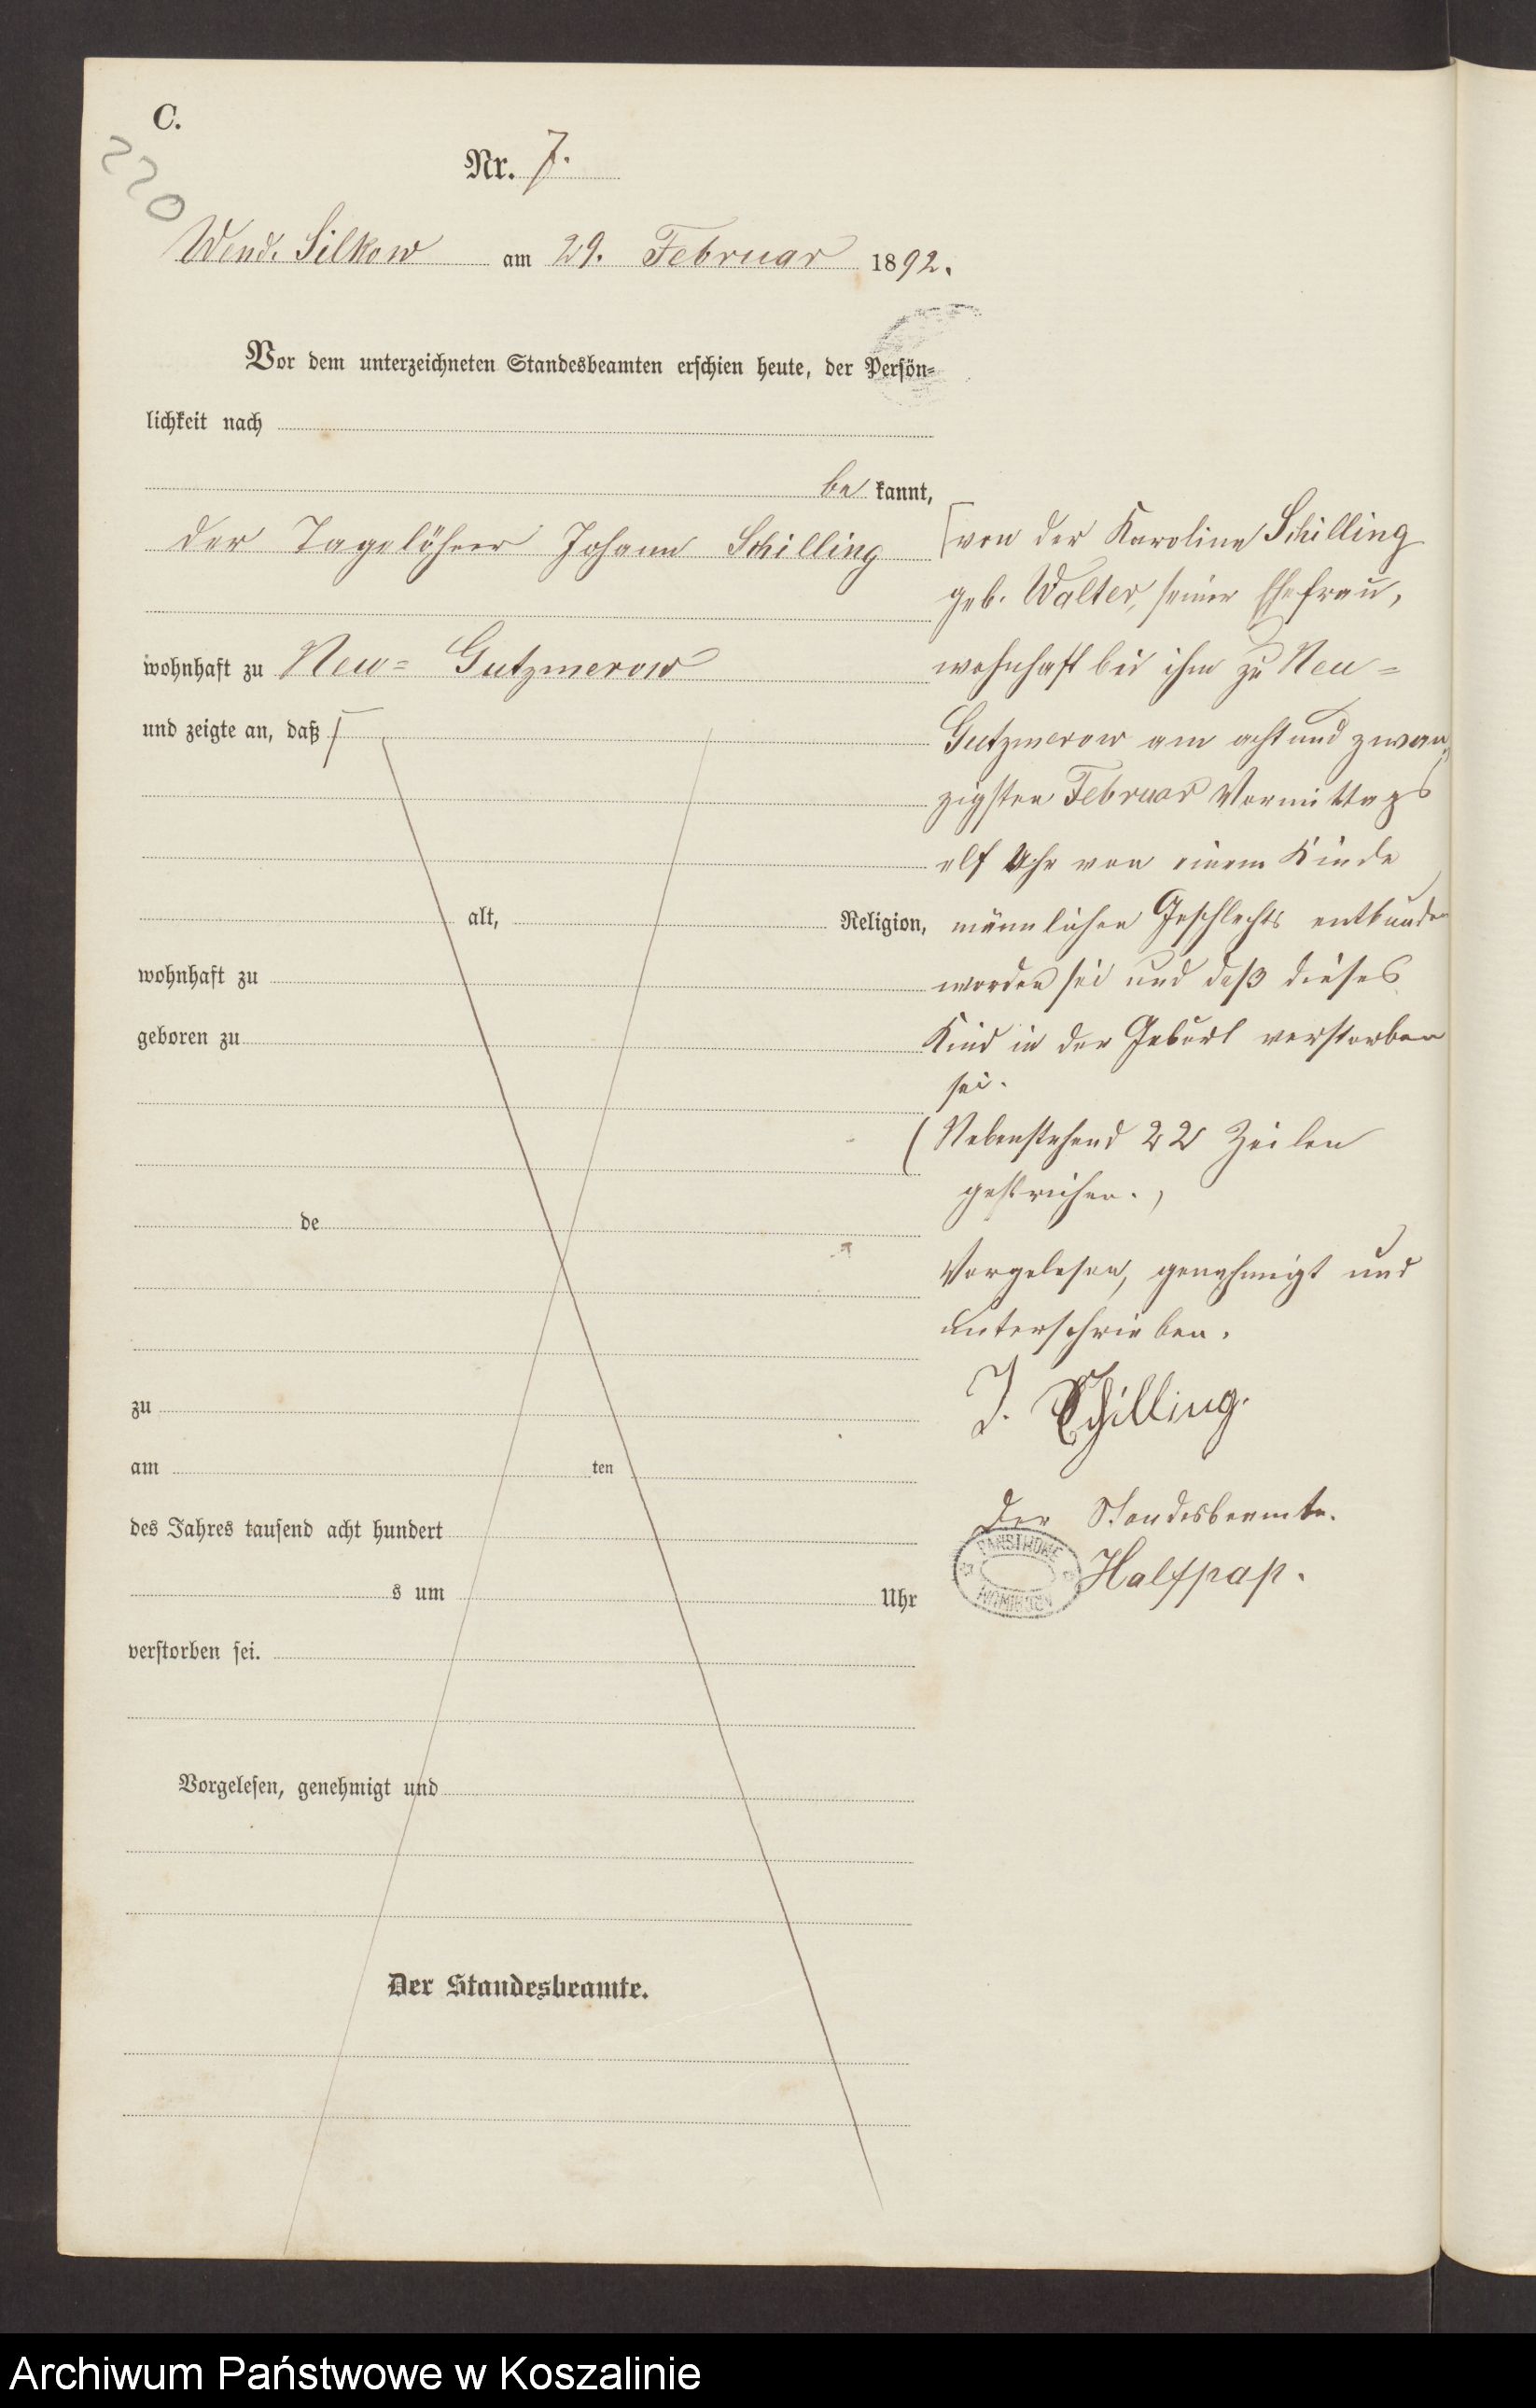 C.
220
Nr. 7.
Wend. Silkow am 29. Februar 1892.
Vor dem unterzeichneten Standesbeamten erschien heute, der Persön-
lichkeit nach
be kannt,
der Tagelöhner Johann Schilling
wohnhaft zu Neu= Gutzmerow
und zeigte an, daß
alt, Religion,
wohnhaft zu
geboren zu
de
zu
am ten
des Jahres tausend acht hundert
s um Uhr
verstorben sei.
Vorgelesen, genehmigt und
Der Standesbeamte.
von der Karoline Schilling
geb. Walter, seiner Ehefrau,
wohnhaft bei ihm zu Neu=
Gutzmerow am acht und zwan
zigsten Februar Vormittags
elf Uhr von einem Kinde
männlichen Geschlechts entbunden
worden sei und daß dieses
Kind in der Geburt verstorben
sei.
(Nebenstehend 22 Zeilen
gestrichen.)
Vorgelesen, genehmigt und
unterschrieben.
J. Schilling.
Der Standesbeamte.
Halfpap.
Archiwum Państwowe w Koszalinie